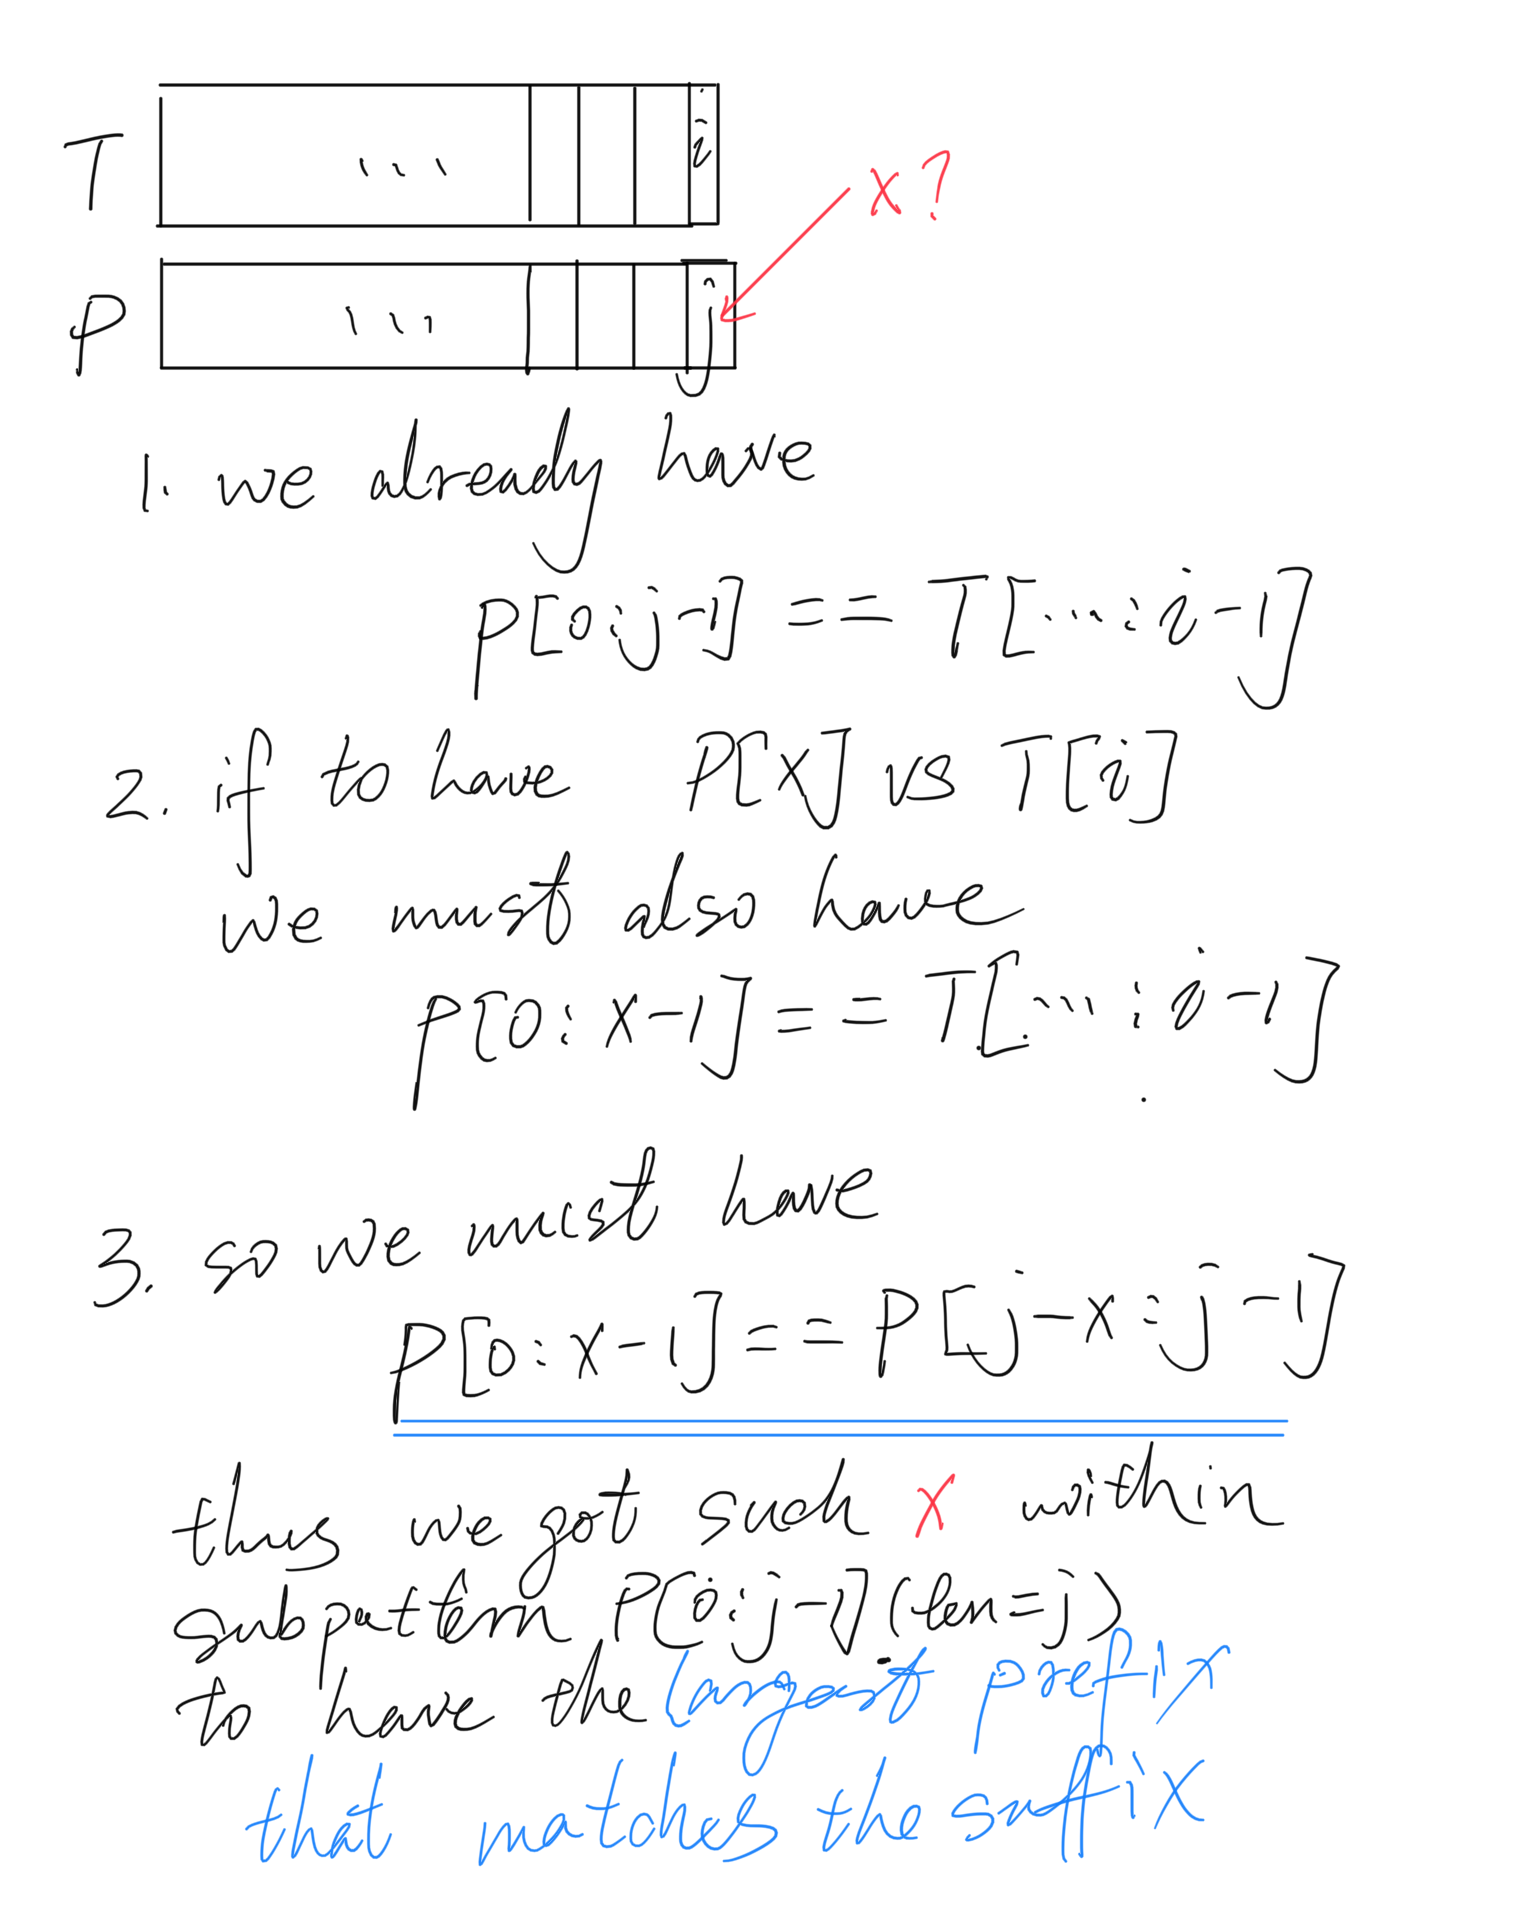 T ... i
x?
P ... j
1. we already have
P[0:j-1] == T[...:i-1]
2. if to have P[x] vs T[i]
we must also have
P[0:x-1] == T[...:i-1]
3. so we must have
P[0:x-1] == P[j-x:j-1]
thus we got such x within
subpattern P[0:j-1] (len=j)
to have the largest prefix
that matches the suffix